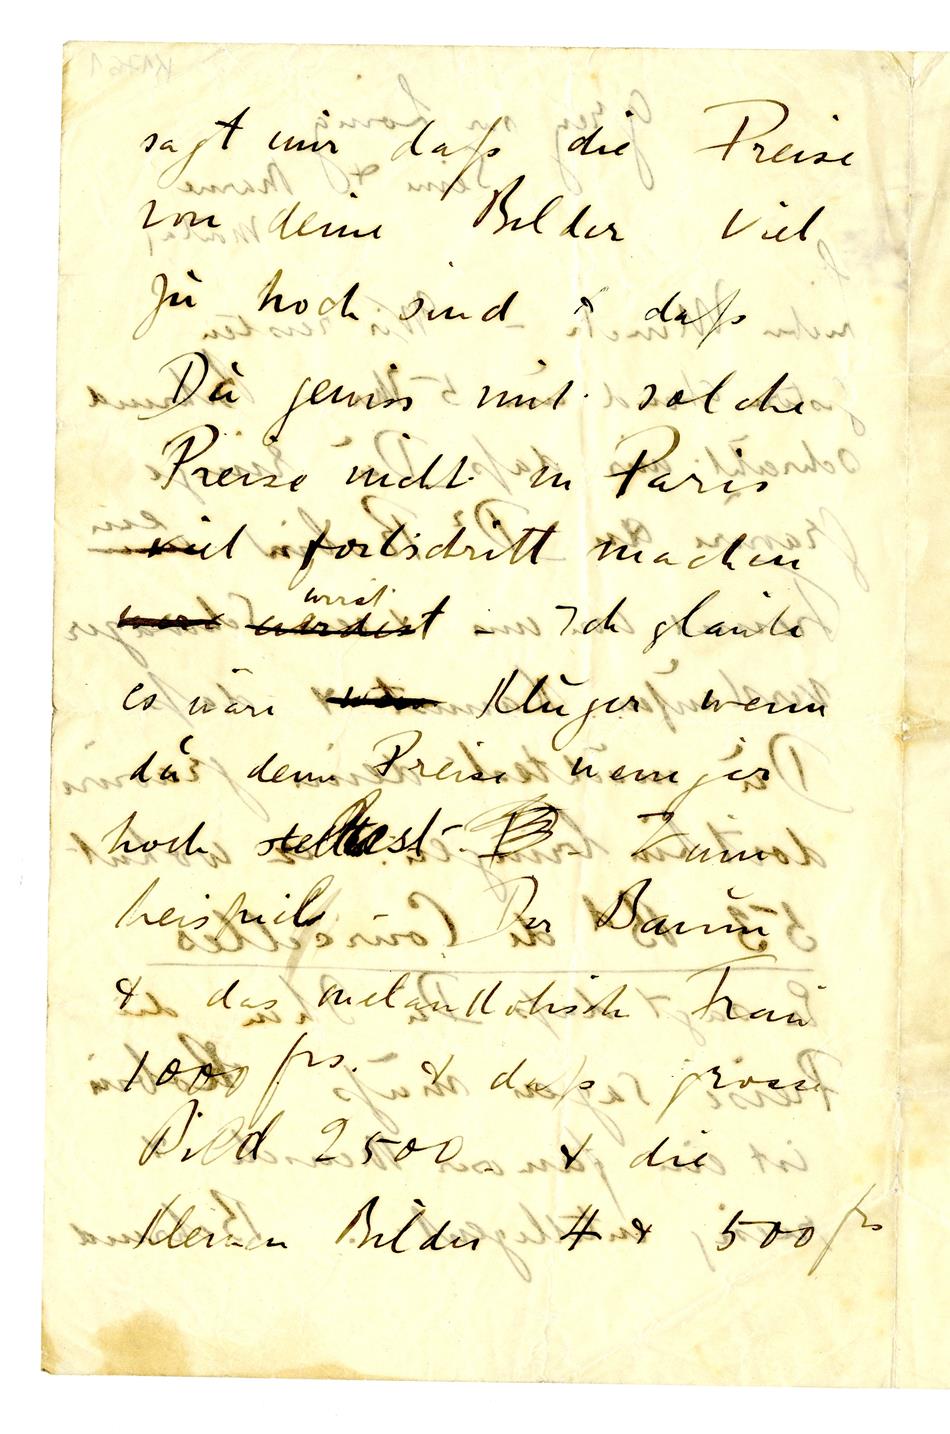 sagt mir daſs die Preise
von deine Bilder viel
zu hoch sind & daſs
Dù gewiss mit solche
Preise nicht in Paris
viel fortschritt machen
wirst
werdest – Ich glaùbe
es wäre klùger wenn
dù deine Preise weniger
hoch stelltest – Zum
beispiel – Der Baùm
& das melankolisch Fraù
1000 frs. & daſs grosse
Bild 2500 & die
kleinen Bilder 4 & 500 frs